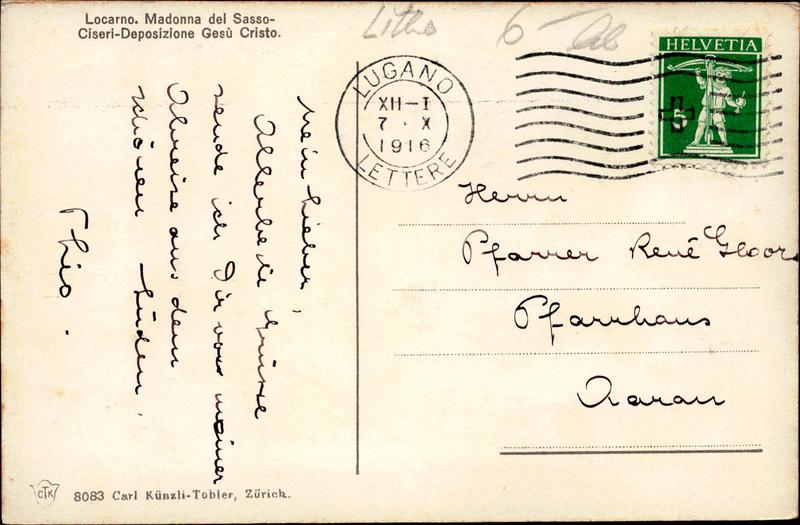 Locarno. Madonna del Sasso-
Ciseri-Deposizione Gesù Cristo.
Litho 6
LUGANO
XII-I
7 · X
1916
LETTERE
HELVETIA
5
Mein Lieber,
Allerbeste Grüsse
sende ich Dir vor meiner
Abreise aus dem
schönen Süden.
Herrn
Pfarrer René Gloor
Pfarrhaus
Aarau
CTK
8083 Carl Künzli-Tobler, Zürich.